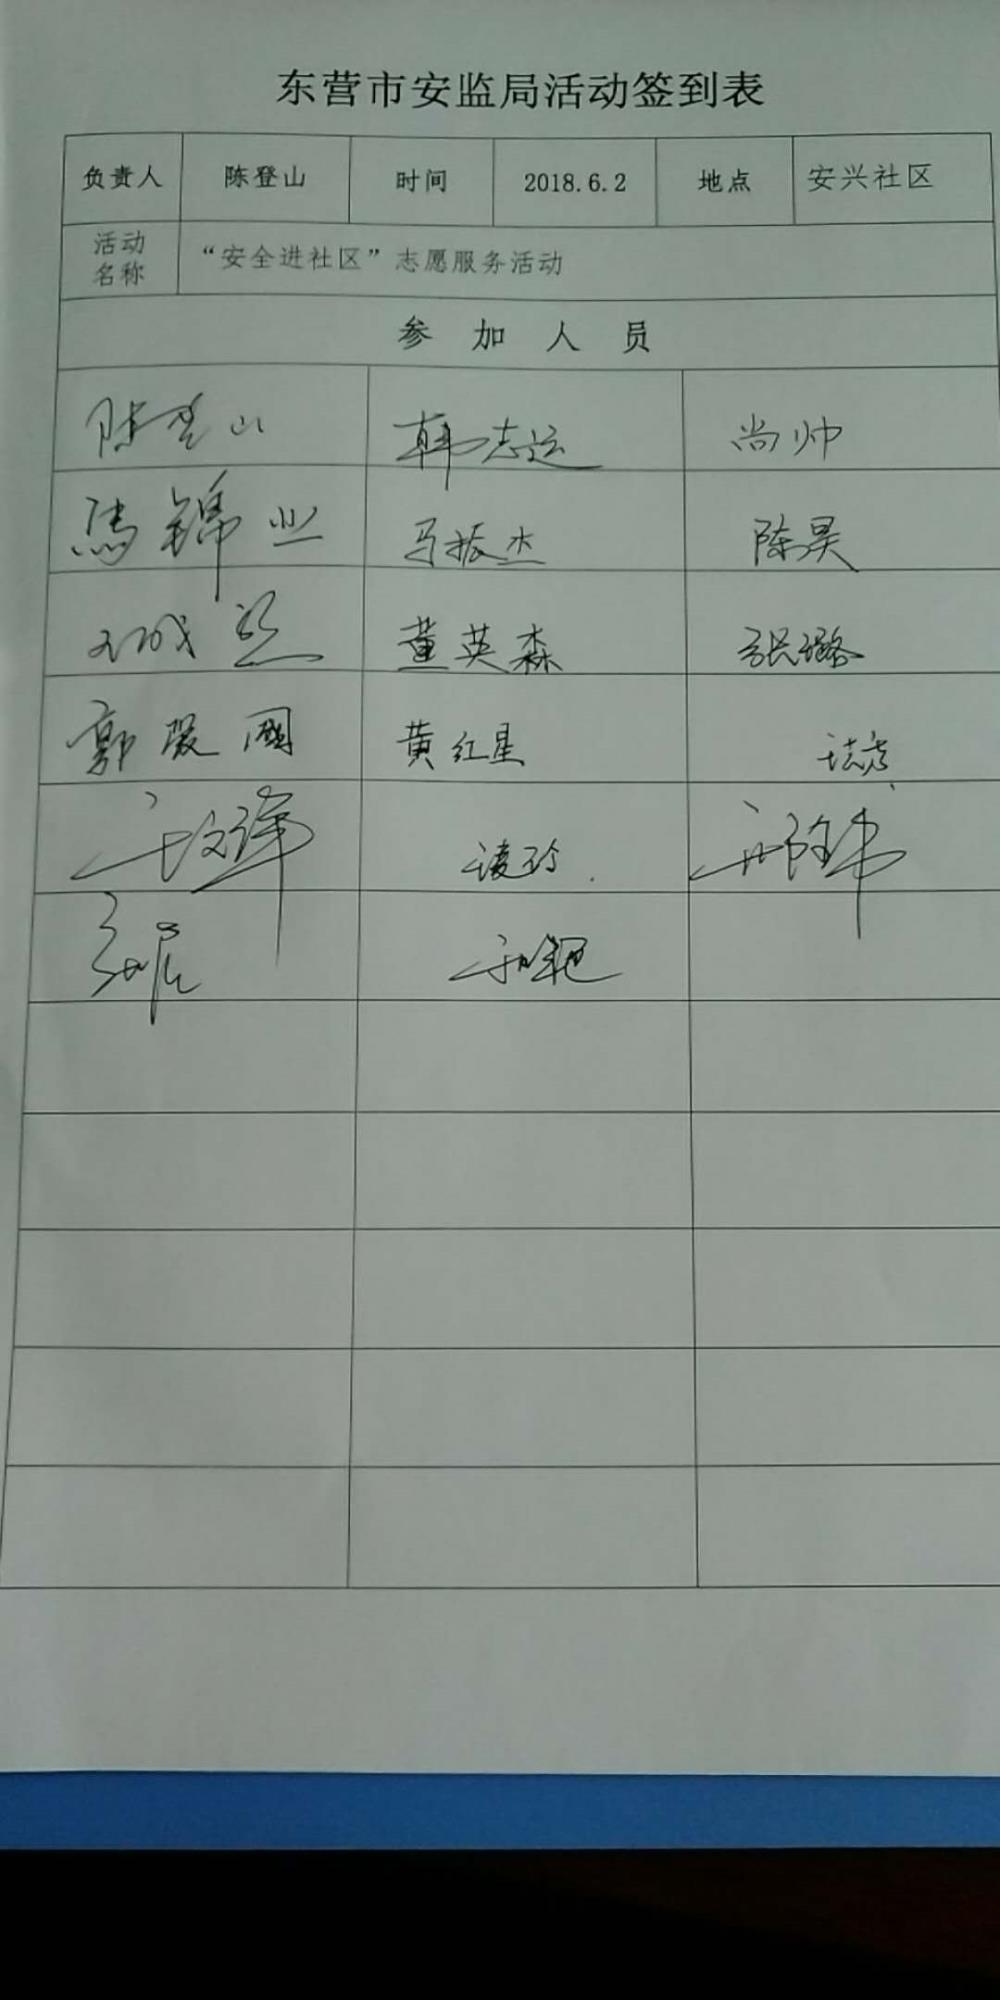 东营市安监局活动签到表
负责人 陈登山 时间 2018.6.2 地点 安兴社区
活动名称 “安全进社区”志愿服务活动
参 加 人 员
陈登山 韩志运 尚帅
馬錦业 马振杰 陈昊
董英森 张璐
郭爱國 黄红星